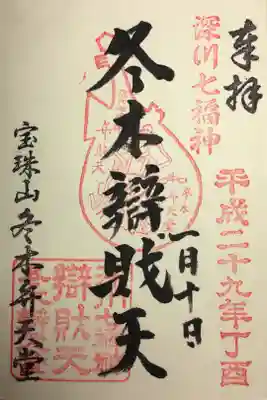 奉拝
深川七福神
平成二十九年丁酉
一月十日
冬木辯財天
宝珠山冬木弁天堂
辯財天